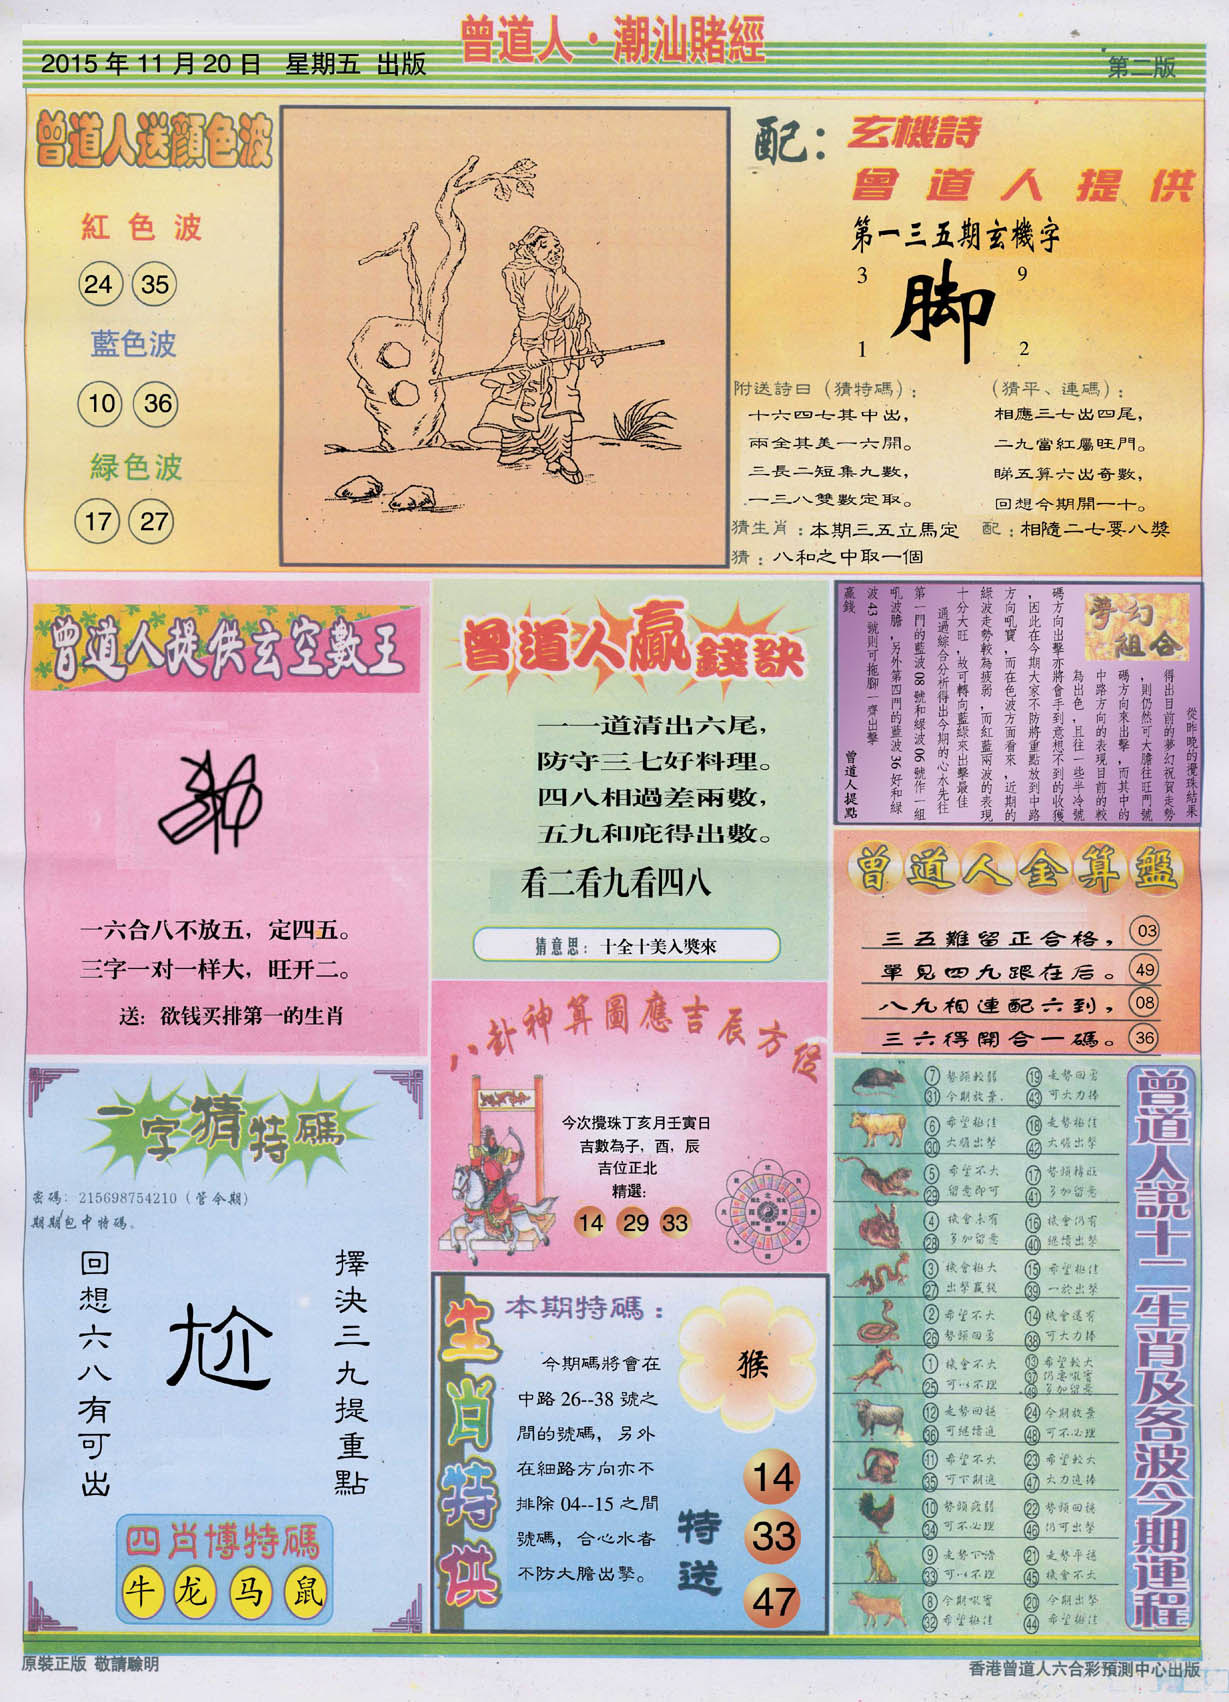 曾道人·潮汕賭經
2015年11月20日 星期五 出版
第二版
曾道人送顏色波
紅色波
24 35
藍色波
10 36
緑色波
17 27
配：玄機詩
曾道人提供
第一三五期玄機字
3 9
脚
1 2
附送詩曰（猜特碼）：
十六四七其中出，
兩全其美一六開。
三長二短集九數，
一三八雙數定取。
（猜平、連碼）：
相應三七出四尾，
二九當紅屬旺門。
睇五算六出奇數，
回想今期開一十。
猜生肖：本期三五立馬定
配：相隨二七要八獎
猜：八和之中取一個
曾道人提供玄空數王
一六合八不放五，定四五。
三字一对一样大，旺开二。
送：欲钱买排第一的生肖
曾道人贏錢訣
一一道清出六尾，
防守三七好料理。
四八相過差兩數，
五九和庇得出數。
看二看九看四八
猜意思：十全十美入獎來
夢幻組合
從昨晚的攪珠結果
得出目前的夢幻祝賀走勢
，則仍然可大膽往旺門號
碼方向來出擊，而其中的
中路方向的表現目前的較
為出色，且往一些半冷號
碼方向出擊亦將會手到意想不到的收獲
，因此在今期大家不防將重點放到中路
方向吼寶，而在色波方面看來，近期的
綠波走勢較為疲弱，而紅藍兩波的表現
十分大旺，故可轉向藍綠來出擊最佳
通過綜合分析得出今期的心水先往
第一門的藍波08號和綠波06號作一組
吼波膽，另外第四門的藍波36好和綠
波43號則可拖腳一齊出擊
贏錢
曾道人提點
曾道人金算盤
三五難留正合格，03
單見四九跟在后。49
八九相連配六到，08
三六得開合一碼。36
八卦神算圖應吉辰方位
今次攪珠丁亥月壬寅日
吉數為子，酉，辰
吉位正北
精選：
14 29 33
一字猜特碼
密碼：215698754210（管今期）
期期包中特碼。
擇決三九提重點
尬
回想六八有可出
四肖博特碼
牛 龙 马 鼠
生肖特供
本期特碼：
今期碼將會在
中路26--38號之
間的號碼，另外
在細路方向亦不
排除04--15之間
號碼，合心水者
不防大膽出擊。
猴
特送
14
33
47
曾道人説十二生肖及各波今期運程
⑦ 勢頭較弱 ⑲ 走勢回勇
㉛ 今期放棄 ㊸ 可大力捧
⑥ 希望極佳 ⑱ 走勢極佳
㉚ 大膽出擊 ㊷ 大膽出擊
⑤ 希望不大 ⑰ 勢頭轉旺
㉙ 留意即可 ㊶ 多加留意
④ 機會未有 ⑯ 機會仍有
㉘ 多加留意 ㊵ 繼續出擊
③ 機會極大 ⑮ 希望極佳
㉗ 出擊贏錢 ㊴ 一於出擊
② 希望不大 ⑭ 機會還有
㉖ 勢頭回勇 ㊳ 可大力捧
① 機會不大 ⑬ 希望較大
㉕ 可以不理 ㊲ 仍要吼實
㊾ 多加留意
⑫ 走勢回穩 ㉔ 今期放棄
㊱ 可繼續追 ㊽ 可不必理
⑪ 希望不大 ㉓ 希望較大
㉟ 可下期追 ㊼ 大力追捧
⑩ 勢頭疲弱 ㉒ 勢頭回穩
㉞ 可不必理 ㊻ 仍可出擊
⑨ 走勢下滑 ㉑ 走勢平穩
㉝ 可以不理 ㊺ 機會不大
⑧ 今期吼實 ⑳ 今期出擊
㉜ 希望極佳 ㊹ 希望極佳
原裝正版 敬請驗明
香港曾道人六合彩預測中心出版